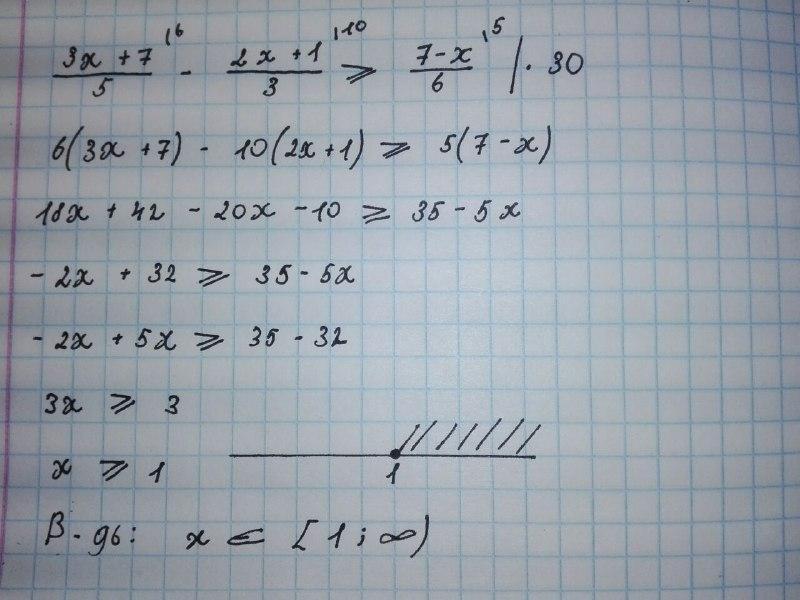 (3x + 7)/5 ¹⁶ - (2x + 1)/3 ¹¹⁰ ⩾ (7 - x)/6 ¹⁵ | · 30
6(3x + 7) - 10(2x + 1) ⩾ 5(7 - x)
18x + 42 - 20x - 10 ⩾ 35 - 5x
- 2x + 32 ⩾ 35 - 5x
- 2x + 5x ⩾ 35 - 32
3x ⩾ 3
x ⩾ 1
1
В-дь: x ∈ [1; ∞)